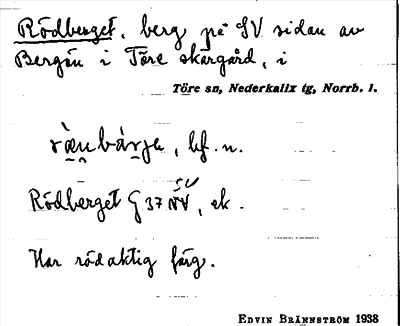 Rödberget, berg på SV sidan av
Bergön i Töre skärgård, i
Töre sn, Nederkalix tg, Norrb. l.
bf. n.
Rödberget G 37 SV, ek.
Har rödaktig färg.
EDVIN BRÄNNSTRÖM 1938